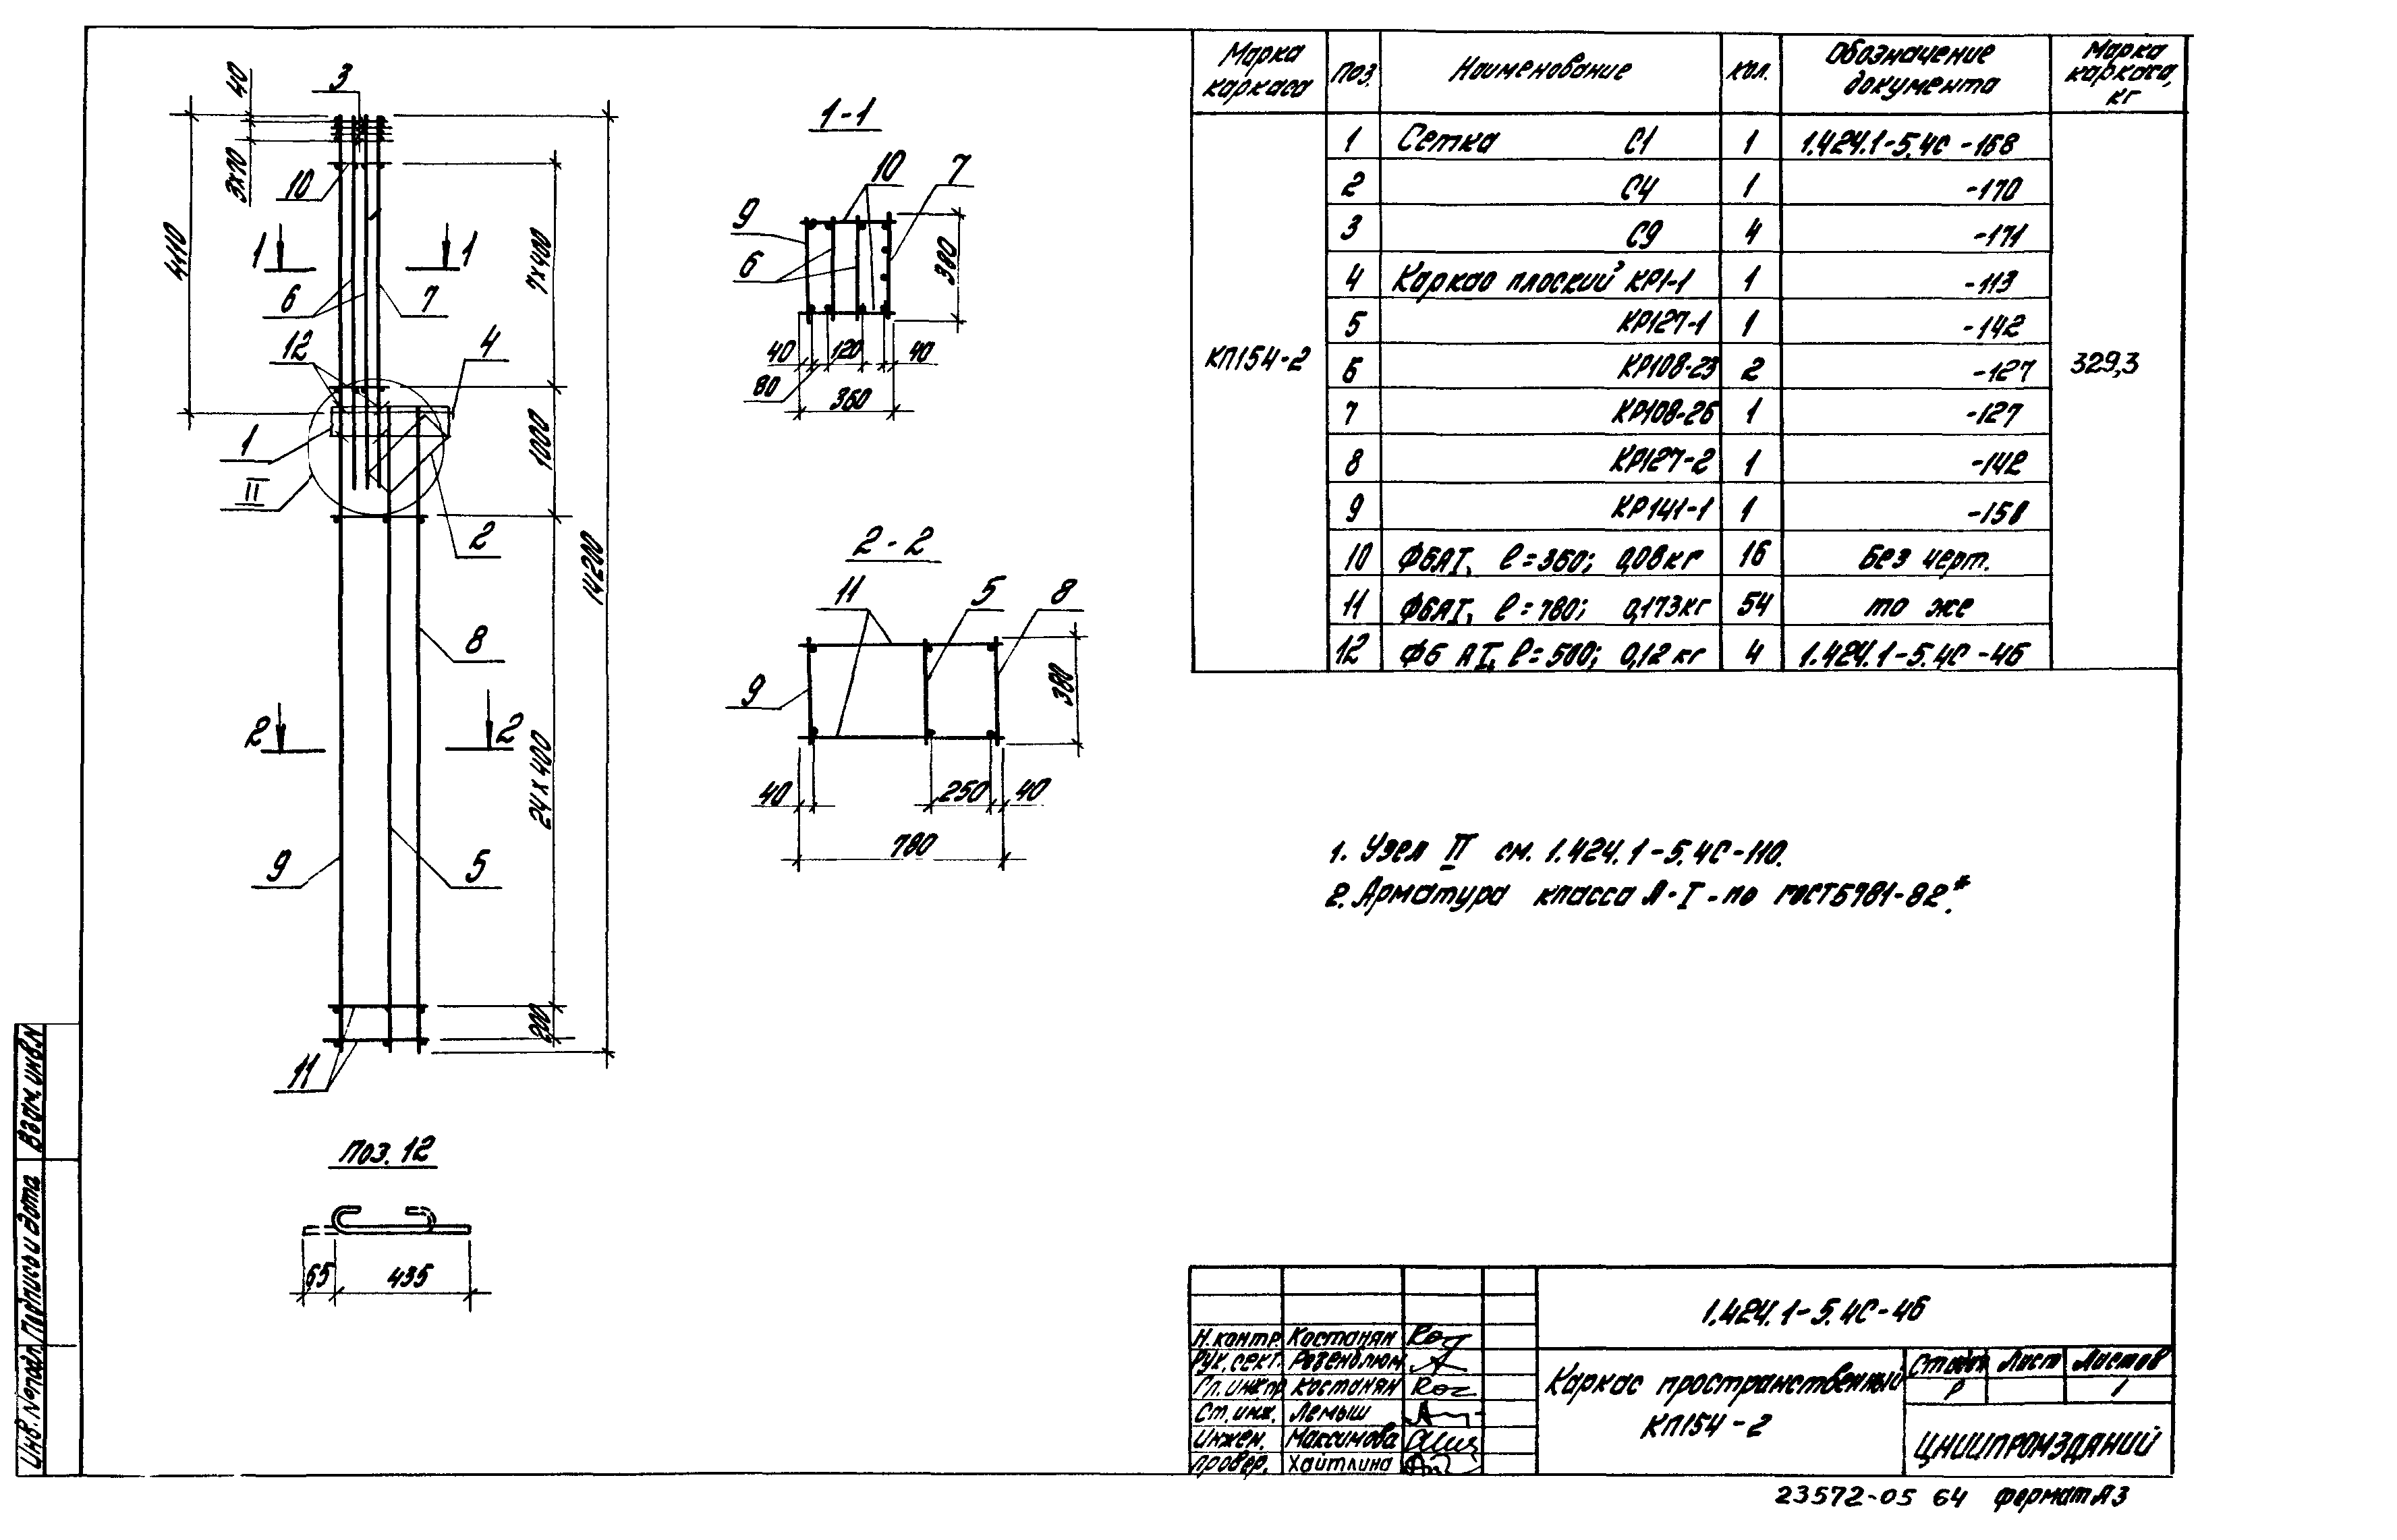 Марка каркаса
Поз.
Наименование
Кол.
Обозначение документа
Марка каркаса, кг
КП154-2
329,3
1 Сетка С1 1 1.424.1-5.4С -168
2 С4 1 -170
3 С9 4 -171
4 Каркас плоский КР1-1 1 -113
5 КР127-1 1 -142
6 КР108-23 2 -127
7 КР108-26 1 -127
8 КР127-2 1 -142
9 КР141-1 1 -158
10 Ф6АI, ℓ=360; 0,08кг 16 Без черт.
11 Ф6АI, ℓ=780; 0,173кг 54 то же
12 Ф6 АI, ℓ=500; 0,12кг 4 1.424.1-5.4С -46
40
3
3х70
10
4110
1 1
6
7
7х400
12
4
1
II
1000
2
14200
8
2 2
24х400
9
5
200
11
Поз. 12
65
435
1-1
10
7
9
6
380
40
120
40
80
360
2-2
11
5
8
9
380
40
250
40
780
1. Узел II см. 1.424.1-5.4С-110.
2. Арматура класса А-I-по ГОСТ5781-82*.
1.424.1-5.4С-46
Н.контр. Костанян
Рук.сект. Розенблюм
Гл.инж.пр Костанян
Ст.инж. Лемыш
Инжен. Максимова
провер. Хаитлина
Каркас пространственный
КП154-2
Стадия Лист Листов
Р 1
ЦНИИПРОМЗДАНИЙ
23572-05 64 формат А3
Взам. инв.N
Подпись и дата
Инв. N подл.